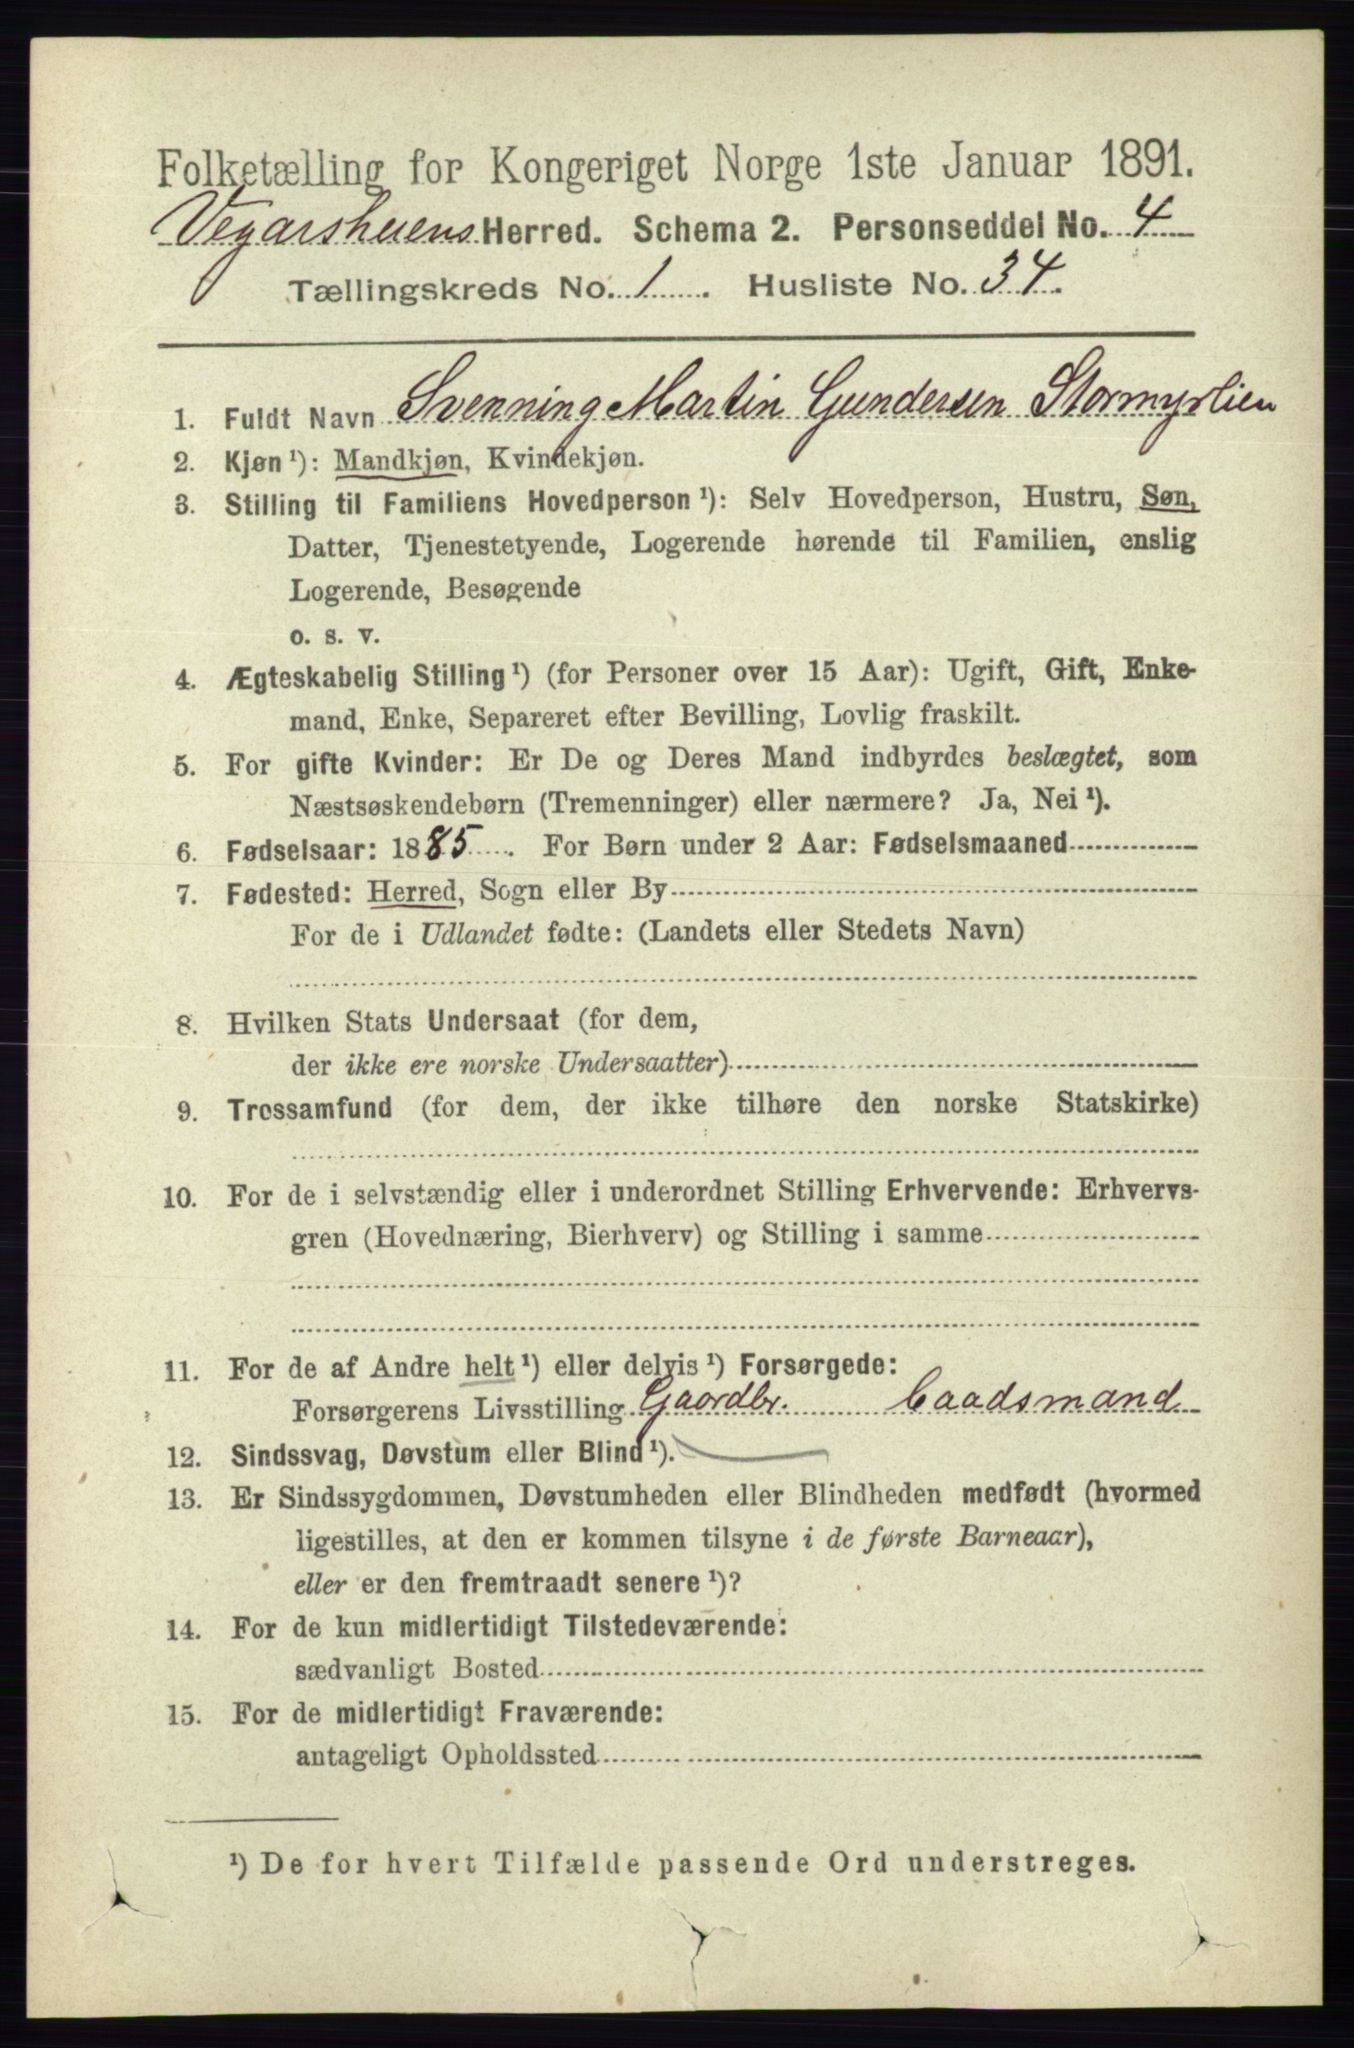 Folketælling for Kongeriget Norge 1ste Januar 1891.
Vegarsheiens Herred. Schema 2. Personseddel No. 4
Tællingskreds No. 1. Husliste No. 34.
1. Fuldt Navn Svenning Martin Gundersen Stormyrlien
2. Kjøn ¹): Mandkjøn, Kvindekjøn.
3. Stilling til Familiens Hovedperson ¹): Selv Hovedperson, Hustru, Søn,
Datter, Tjenestetyende, Logerende hørende til Familien, enslig
Logerende, Besøgende
o. s. v.
4. Ægteskabelig Stilling ¹) (for Personer over 15 Aar): Ugift, Gift, Enke-
mand, Enke, Separeret efter Bevilling, Lovlig fraskilt.
5. For gifte Kvinder: Er De og Deres Mand indbyrdes beslægtet, som
Næstsøskendebørn (Tremenninger) eller nærmere? Ja, Nei ¹).
6. Fødselsaar: 1885. For Børn under 2 Aar: Fødselsmaaned
7. Fødested: Herred, Sogn eller By
For de i Udlandet fødte: (Landets eller Stedets Navn)
8. Hvilken Stats Undersaat (for dem,
der ikke ere norske Undersaatter)
9. Trossamfund (for dem, der ikke tilhøre den norske Statskirke)
10. For de i selvstændig eller i underordnet Stilling Erhvervende: Erhvervs-
gren (Hovednæring, Bierhverv) og Stilling i samme
11. For de af Andre helt ¹) eller delvis ¹) Forsørgede:
Forsørgerens Livsstilling Gaardbr. Baadsmand
12. Sindssvag, Døvstum eller Blind ¹).
13. Er Sindssygdommen, Døvstumheden eller Blindheden medfødt (hvormed
ligestilles, at den er kommen tilsyne i de første Barneaar),
eller er den fremtraadt senere ¹)?
14. For de kun midlertidigt Tilstedeværende:
sædvanligt Bosted
15. For de midlertidigt Fraværende:
antageligt Opholdssted
¹) De for hvert Tilfælde passende Ord understreges.